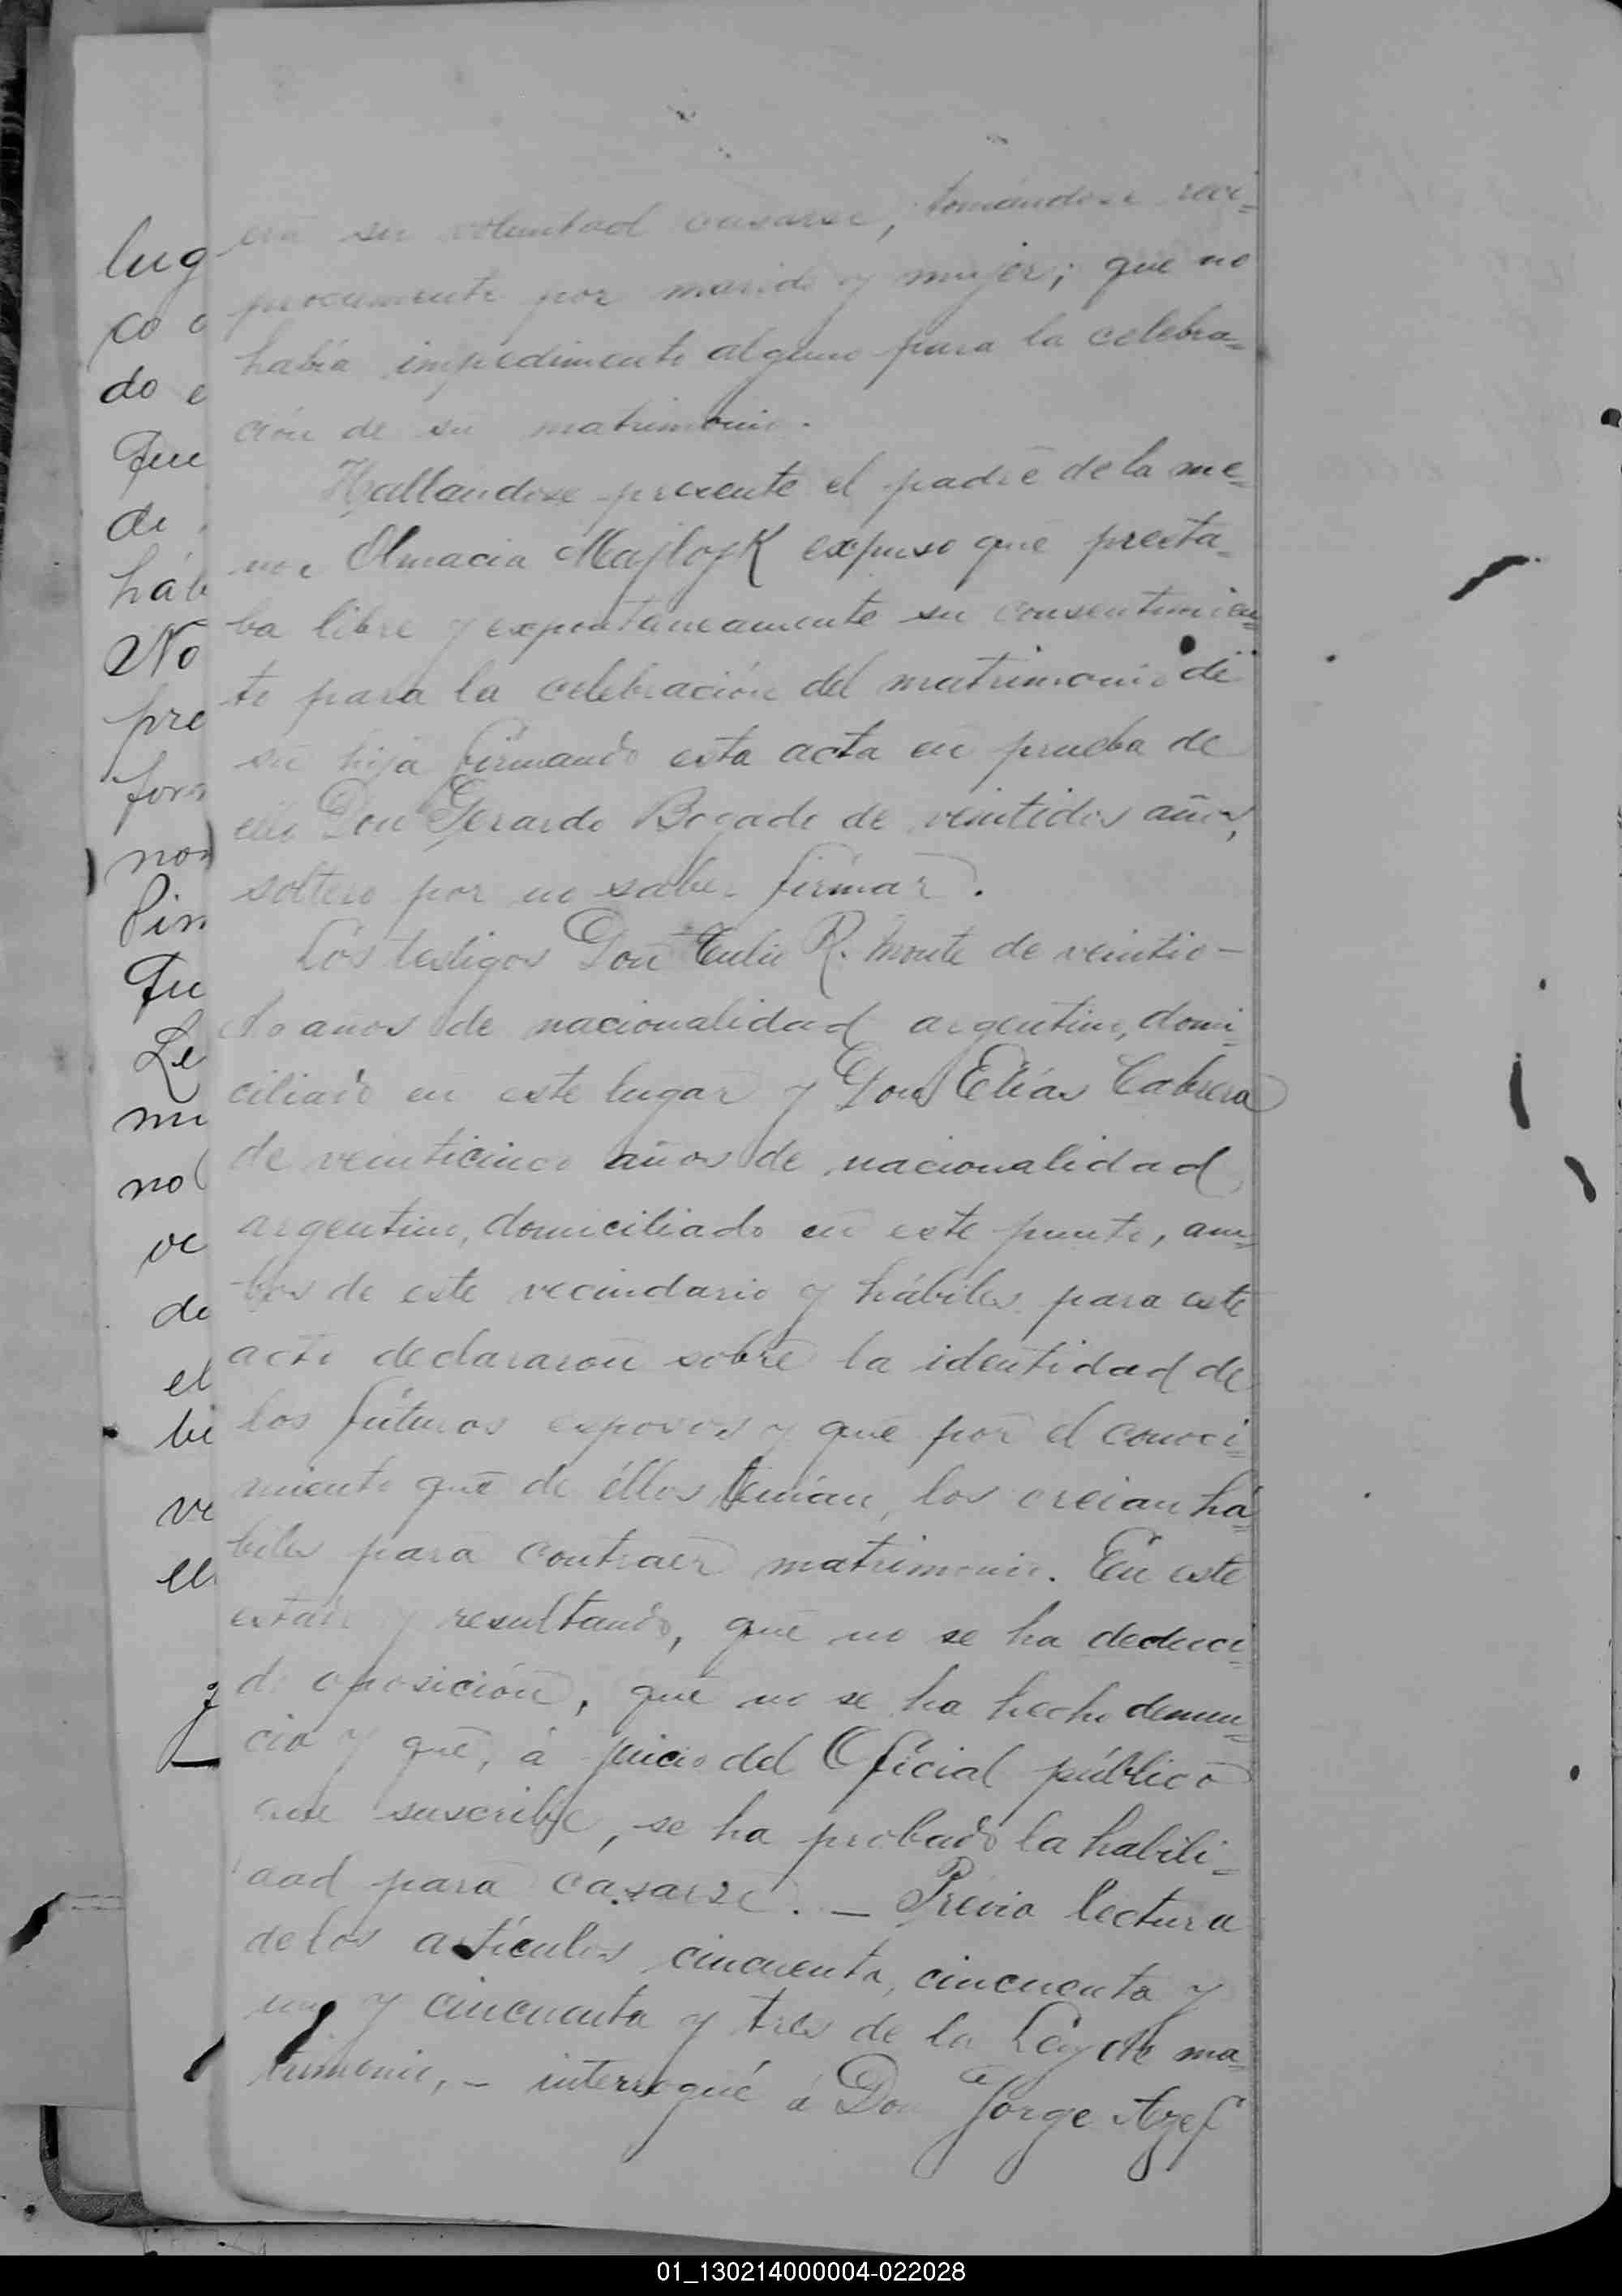 era su voluntad casarse, tomándose reci=
procamente por marido y mujer; que no
había impedimento alguno para la celebra=
ción de su matrimonio.
Hallandose presente el padre de la me=
nor Almacia expuso que presta=
ba libre y expontaneamente su consentimien=
to para la celebración del matrimonio de
su hija firmando esta acta en prueba de
ello Don Gerardo Bogado de veintidos años,
soltero por no saber firmar.
Los testigos Don Julio R. Monte de veintio-
cho años de nacionalidad argentino, domi=
ciliado en este lugar y Don Elías Cabrera
de veinticinco años de nacionalidad
argentino, domiciliado en este punto, am=
bos de este vecindario y hábiles para este
acto declararon sobre la identidad de
los futuros esposos y que por el conoci=
miento que de éllos tenían, los creian há=
biles para contraer matrimonio. En este
estado y resultando, que no se ha deduci=
do oposición, que no se ha hecho denun=
cia y que, á juicio del Oficial público
que suscribe, se ha probado la habili=
dad para casarse. — Previa lectura
de los artículos cincuenta, cincuenta y
uno y cincuenta y tres de la Ley de ma=
trimonio, – interrogué á Don Jorge Azef
lug
co
do e
Que
de
háb
No
pre
for
no
Pin
Le
mi
no
ve
de
el
bi
ve
el
01_130214000004-022028